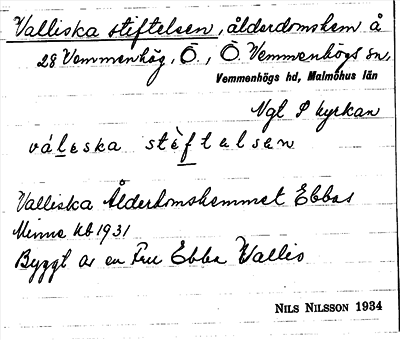 Valliska stiftelsen, ålderdomshem å
28 Vemmenhög, Ö., Ö. Vemmenhögs sn,
Vemmenhögs hd, Malmöhus län
Ngt S kyrkan
váleska stèftelsen
Valliska Ålderdomshemmet Ebbas
Minne kb 1931
Byggt av en Fru Ebba Wallis
NILS NILSSON 1934